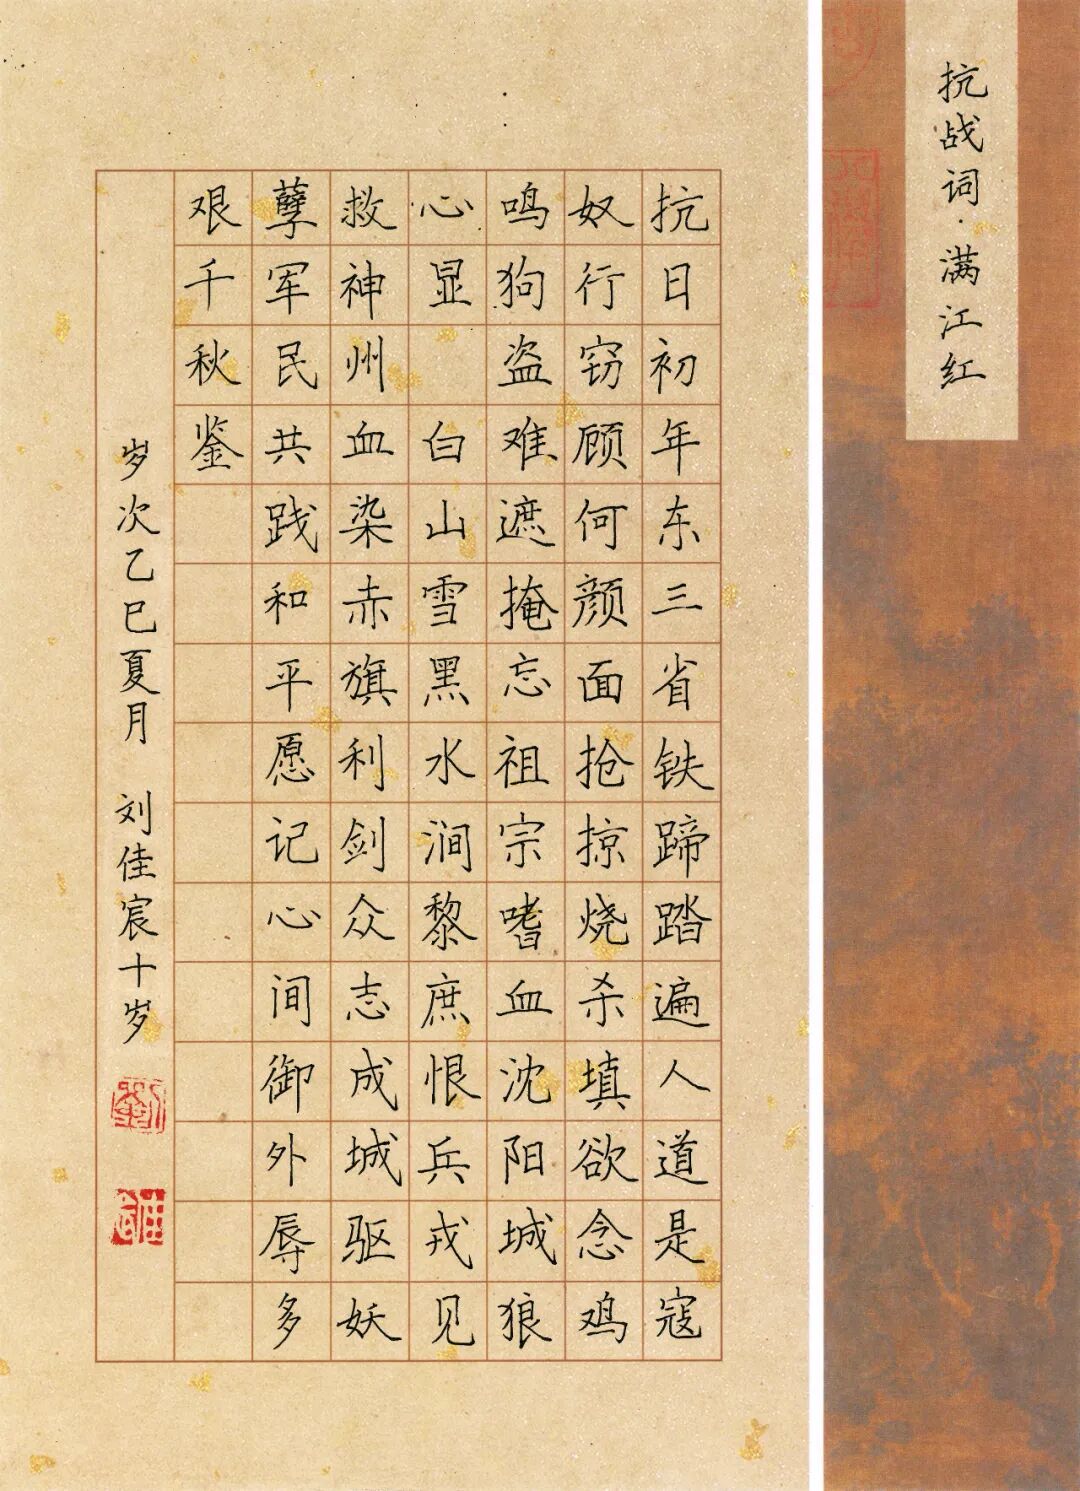 抗战词·满江红
抗日初年东三省铁蹄踏遍人道是寇
奴行窃顾何颜面抢掠烧杀填欲念鸡
鸣狗盗难遮掩忘祖宗嗜血沈阳城狼
心显 白山雪黑水涧黎庶恨兵戎见
救神州血染赤旗利剑众志成城驱妖
孽军民共践和平愿记心间御外辱多
艰千秋鉴
岁次乙巳夏月 刘佳宸十岁